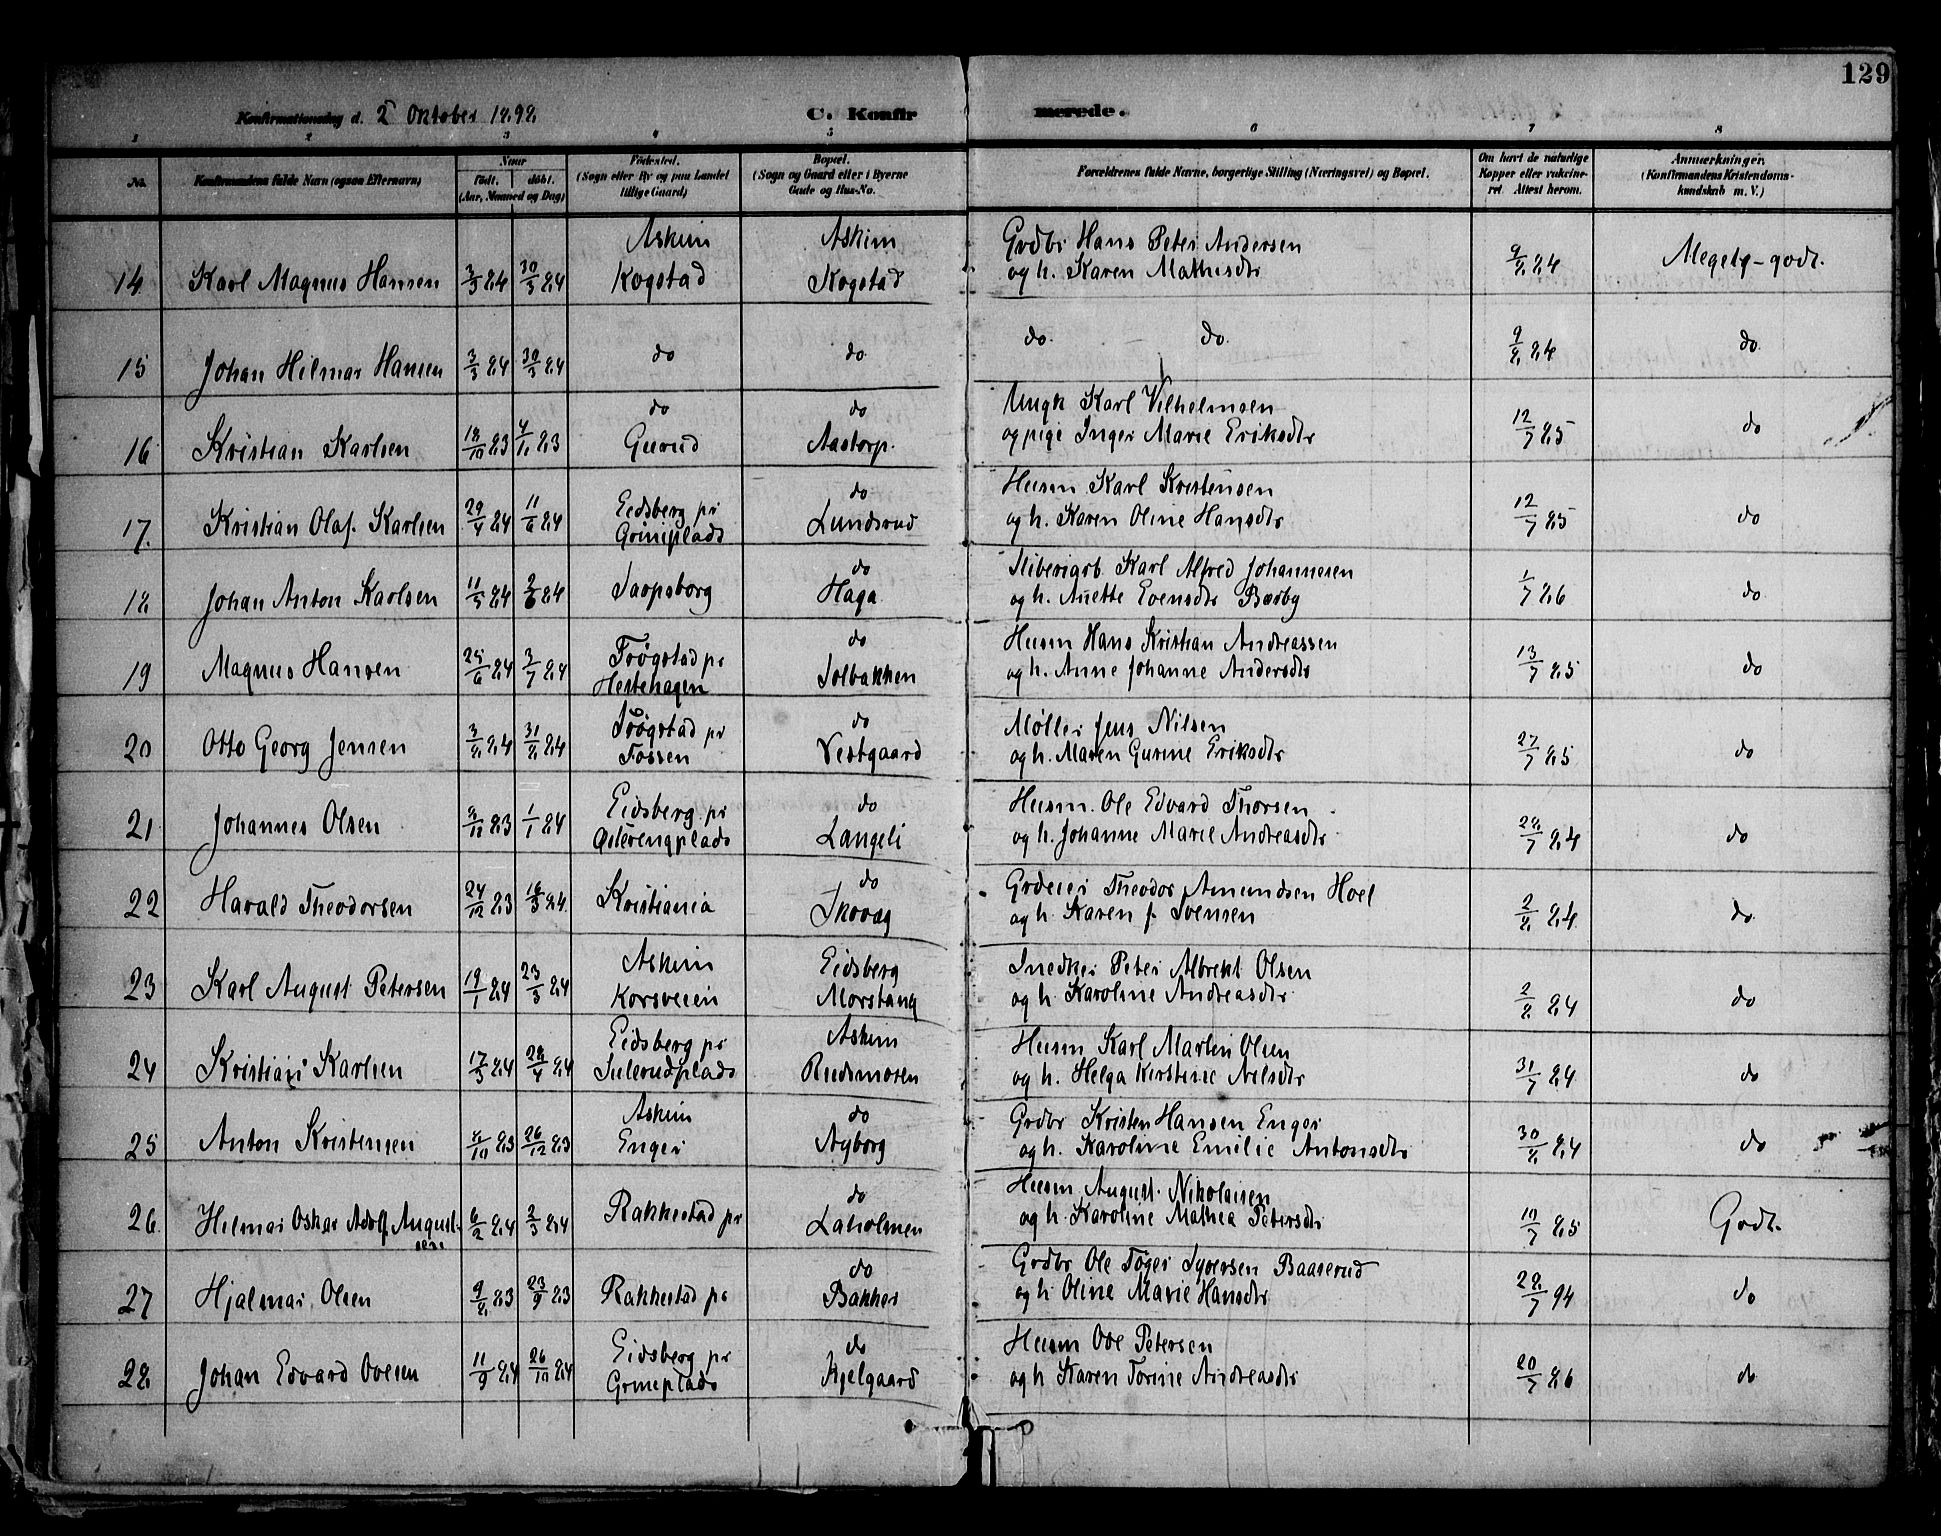 129
Konfirmationsdag d. 2 Oktober 1898. C. Konfirmerede.
1 2 3 4 5 6 7 8
No. Konfirmandens fulde Navn (ogsaa Efternavn) Naar födt. döbt. (Aar, Maaned og Dag) Födested. (Sogn eller By og paa Landet tillige Gaard) Bopæl. (Sogn og Gaard eller i Byerne Gade og Hus-No. Forældrenes fulde Navne, borgerlige Stilling (Næringsvei) og Bopæl. Om havt de naturlige Kopper eller vakcineret. Attest herom. Anmærkninger. (Konfirmandens Kristendomskundskab m. V.)
14 Karl Magnus Hansen 3/3 84 30/3 84 Askim Kogstad Askim Kogstad Grdbr Hans Peter Andersen og h. Karen Mathisdtr 9/8 84 Megetg-godt.
15 Johan Hilmar Hansen 3/3 84 30/3 84 do do do do 9/8 84 do
16 Kristian Karlsen 18/10 83 do Gurud do Aastorp. Ungk Karl Vilhelmsen og pige Inger Marie Eriksdtr 12/7 85 do
17. Kristian Olaf Karlsen 29/4 84 11/6 84 Eidsberg pr Griniplads do Lundsrud Husm Karl Kristensen og h. Karen Oline Hansdtr 12/7 85 do
18 Johan Anton Karlsen 11/5 84 2/6 84 Sarpsborg do Haga Sliberiarb Karl Alfred Johannesen og h. Anette Evensdtr Børby 1/7 86 do
19 Magnus Hansen 25/6 84 2/7 84 Trögstad pr Hestehagen do Solbakken Husm Hans Kristian Andreassen og h. Anne Johanne Andersdtr 13/7 85 do
20 Otto Georg Jensen 3/8 84 31/8 84 Trögstad pr Fossen do Vestgaard Møller Jens Nilsen og h. Maren Gurine Eriksdtr 27/7 85 do
21 Johannes Olsen 8/10 83 1/1 84 Eidsberg pr Østerengplads do Langeli Husm. Ole Edvard Thorsen og h. Johanne Marie Andreasdtr 28/7 84 do
22 Harald Theodorsen 24/12 83 Kristiania do Skovag Grdeier Theodor Amundsen Hoel og h Karen J. Svensen 2/8 84 do
23 Karl August Petersen 19/1 84 23/3 84 Askim Korsveien Eidsberg Morstang Snedker Peter Albrekt Olsen og h. Karoline Andreasdtr 2/8 84 do
24 Kristian Karlsen 17/3 84 28/4 84 Eidsberg pr Sulerudplads Askim Rudsmosen Husm Karl Martin Olsen og h. Helga Kirstine Nilsdtr 31/7 84 do
25 Anton Kristensen 8/10 83 26/12 83 Askim Enger do Nyborg Grdbr Kristen Hansen Enger og h. Karoline Emilie Antonsdtr 30/8 84 do
26 Hilmar Oskar Adolf Augustsen 6/2 84 2/3 84 Rakkestad pr do Laholmen Husm August Nikolaisen og h Karoline Mathea Petersdtr 10/7 85 Godt.
27 Hjalmar Olsen 9/8 83 23/9 83 Rakkestad pr do Bakker Grdbr Ole Töger Syversen Baaserud og h Oline Marie Hansdtr 28/7 94 do
28 Johan Edvard Ovesen 11/9 84 26/10 84 Eidsberg pr Griniplads do Kjelgaard Husm Ove Petersen og h Karen Torine Andreasdtr 20/7 86 do